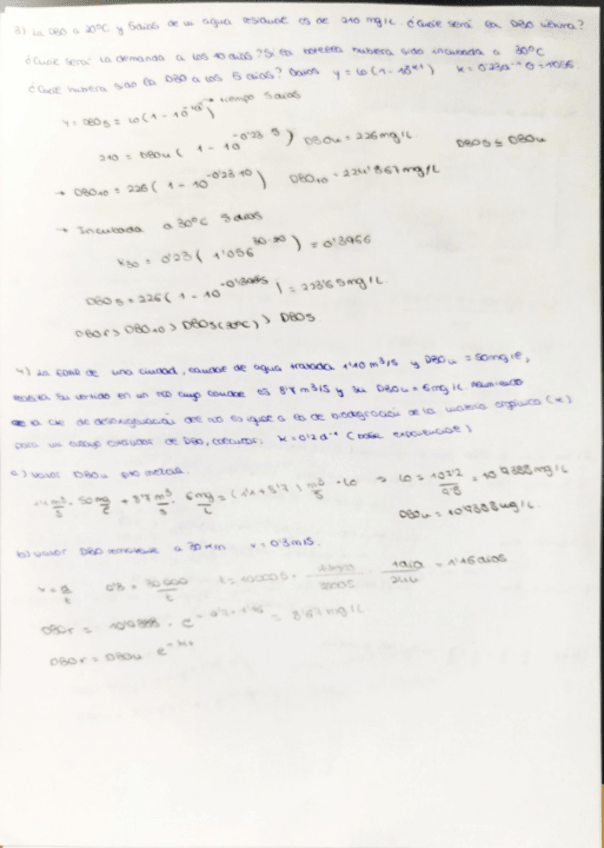 3) La DBO a 20°C y 5 dias de un agua residual es de 210 mg/L. ¿Cuál será la DBO última?
¿Cuál será la demanda a los 10 dias? Si la botella hubiera sido incubada a 30°C
¿Cuál hubiera sido la DBO a los 5 dias? Datos y = Lo(1-10^-kt) K = 0'23 d^-1 θ = 1'056.
Y = DBO5 = Lo(1-10^-kt) → tiempo 5 dias
210 = DBOu (1 - 10^-0'23·5) DBOu = 226 mg/L DBO5 ≤ DBOu
→ DBO10 = 226 (1 - 10^-0'23·10) DBO10 = 224'867 mg/L
→ Incubada a 30°C 5 dias
K30 = 0'23 (1'056^30-20) = 0'3966
DBO5 = 226 (1 - 10^) = 223'65 mg/L
> DBO10 > DBO5(30°C) > DBO5
4) La EDAR de una ciudad, caudal de agua tratada 1'10 m³/s y DBOu = 50 mg/L,
su vertido en un rio cuyo caudal es 8'7 m³/s y su DBOu = 6 mg/L
la cte de desoxigenación del rio es igual a la de biodegradación de la materia orgánica (K)
para un ensayo estándar de DBO, calcular: K = 0'2 d^-1 (base exponencial)
a) Valor DBOu rio mezcla.
m³/s · 50 mg/L + 8'7 m³/s · 6 mg/L = (1'1 + 8'7) m³/s · Lo ⇒ Lo = 107'2/9'8 = 10'9388 mg/L
DBOu = 10'9388 mg/L.
b) Valor DBO remanente a 30 km v = 0'3 m/s.
v = d/t 0'3 = 30.000/t t = 100000 s · · 1 dia/24h = 1'16 dias
DBOr = 10'9388 · e^ = 8'67 mg/L
DBOr = DBOu · e^-kt